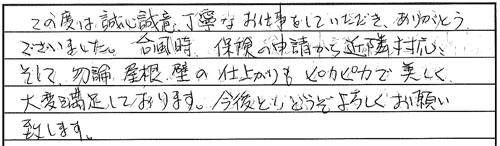 この度は誠心誠意、丁寧なお仕事をしていただき、ありがとう
ございました。台風時、保険の申請から近隣対応、
そして、勿論、屋根、壁の仕上がりもピカピカで美しく、
大変満足しております。今後ともどうぞよろしくお願い
致します。